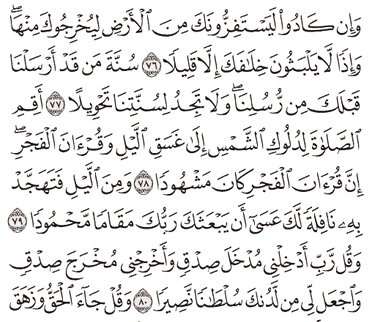 وَإِن كَادُواْ لَيَسْتَفِزُّونَكَ مِنَ ٱلْأَرْضِ لِيُخْرِجُوكَ مِنْهَاۖ
وَإِذًا لَّا يَلْبَثُونَ خِلَٰفَكَ إِلَّا قَلِيلًا ٧٦ سُنَّةَ مَن قَدْ أَرْسَلْنَا
قَبْلَكَ مِن رُّسُلِنَاۖ وَلَا تَجِدُ لِسُنَّتِنَا تَحْوِيلًا ٧٧ أَقِمِ
ٱلصَّلَوٰةَ لِدُلُوكِ ٱلشَّمْسِ إِلَىٰ غَسَقِ ٱلَّيْلِ وَقُرْءَانَ ٱلْفَجْرِۖ
إِنَّ قُرْءَانَ ٱلْفَجْرِ كَانَ مَشْهُودًا ٧٨ وَمِنَ ٱلَّيْلِ فَتَهَجَّدْ
بِهِۦ نَافِلَةً لَّكَ عَسَىٰٓ أَن يَبْعَثَكَ رَبُّكَ مَقَامًا مَّحْمُودًا ٧٩
وَقُل رَّبِّ أَدْخِلْنِي مُدْخَلَ صِدْقٍ وَأَخْرِجْنِي مُخْرَجَ صِدْقٍ
وَٱجْعَل لِّي مِن لَّدُنكَ سُلْطَٰنًا نَّصِيرًا ٨٠ وَقُلْ جَآءَ ٱلْحَقُّ وَزَهَقَ